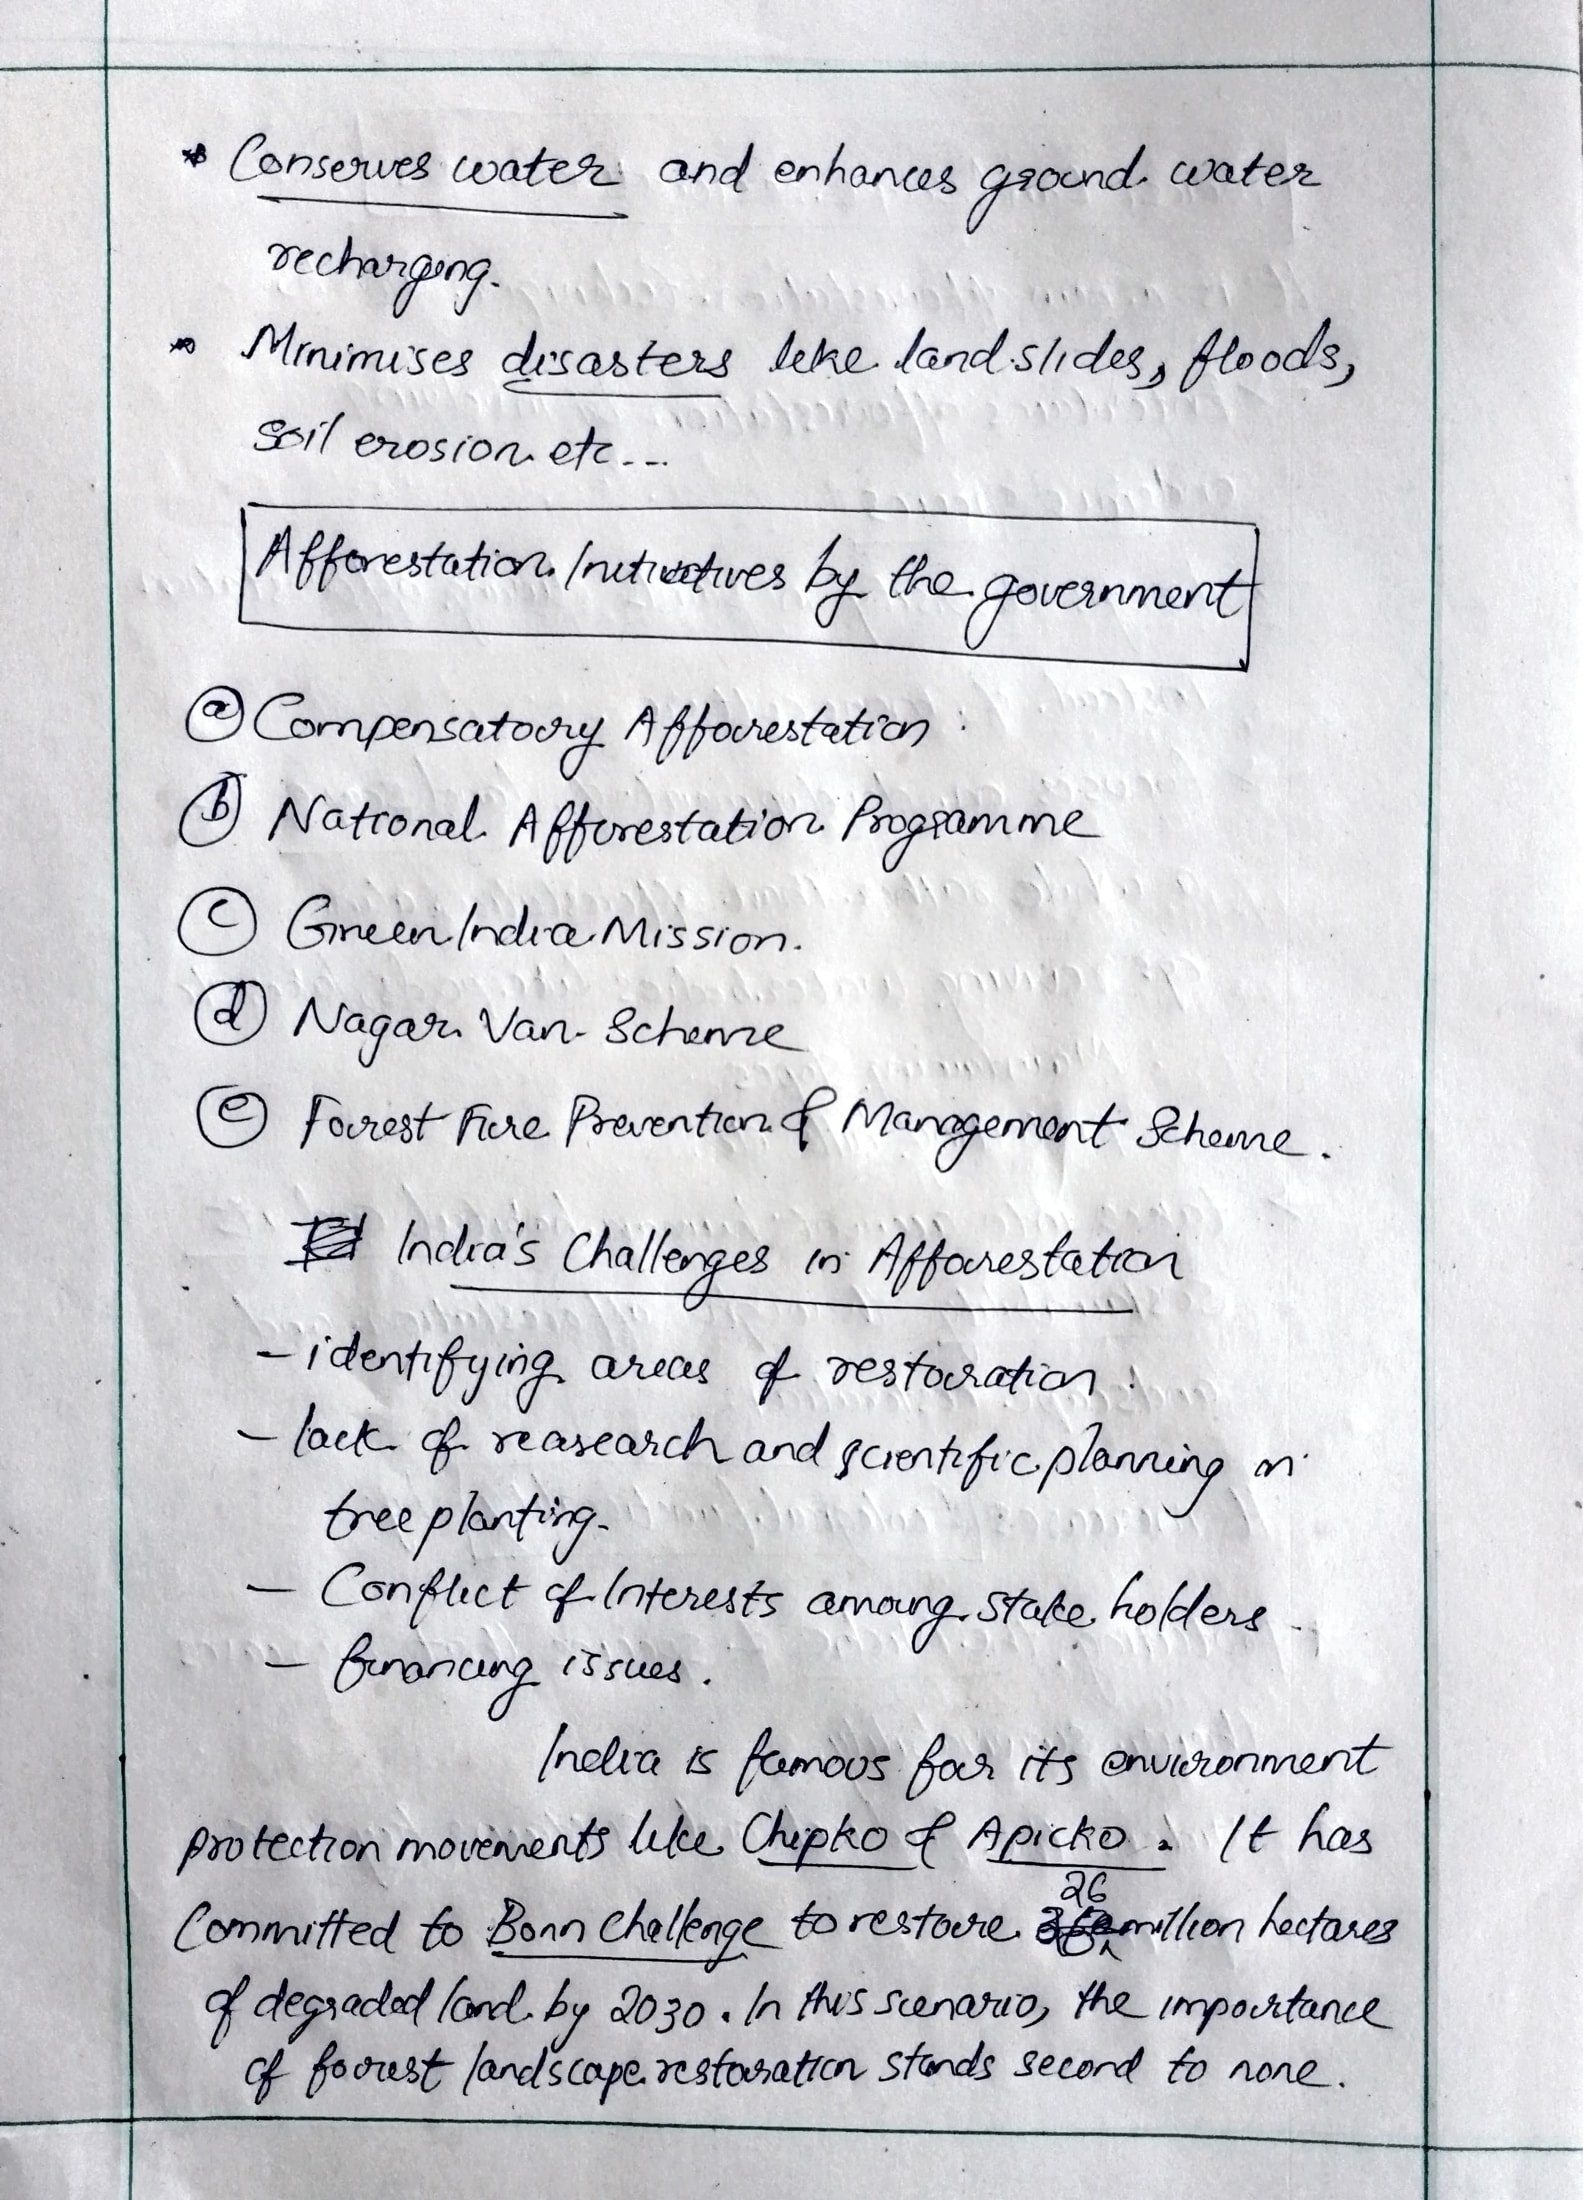 * Conserves water and enhances ground water
recharging.
* Minimises disasters like landslides, floods,
soil erosion etc...
Afforestation Initiatives by the government
(a) Compensatory Afforestation
(b) National Afforestation Programme
(c) Green India Mission.
(d) Nagar Van Scheme
(e) Forest Fire Prevention & Management Scheme.
India's Challenges in Afforestation
- identifying areas of restoration.
- lack of reasearch and scientific planning in
tree planting.
- Conflict of Interests among stake holders.
- financing issues.
India is famous for its environment
protection movements like Chipko & Apicko. It has
26
Committed to Bonn Challenge to restore million hectares
of degraded land by 2030. In this scenario, the importance
of forest landscape restoration stands second to none.